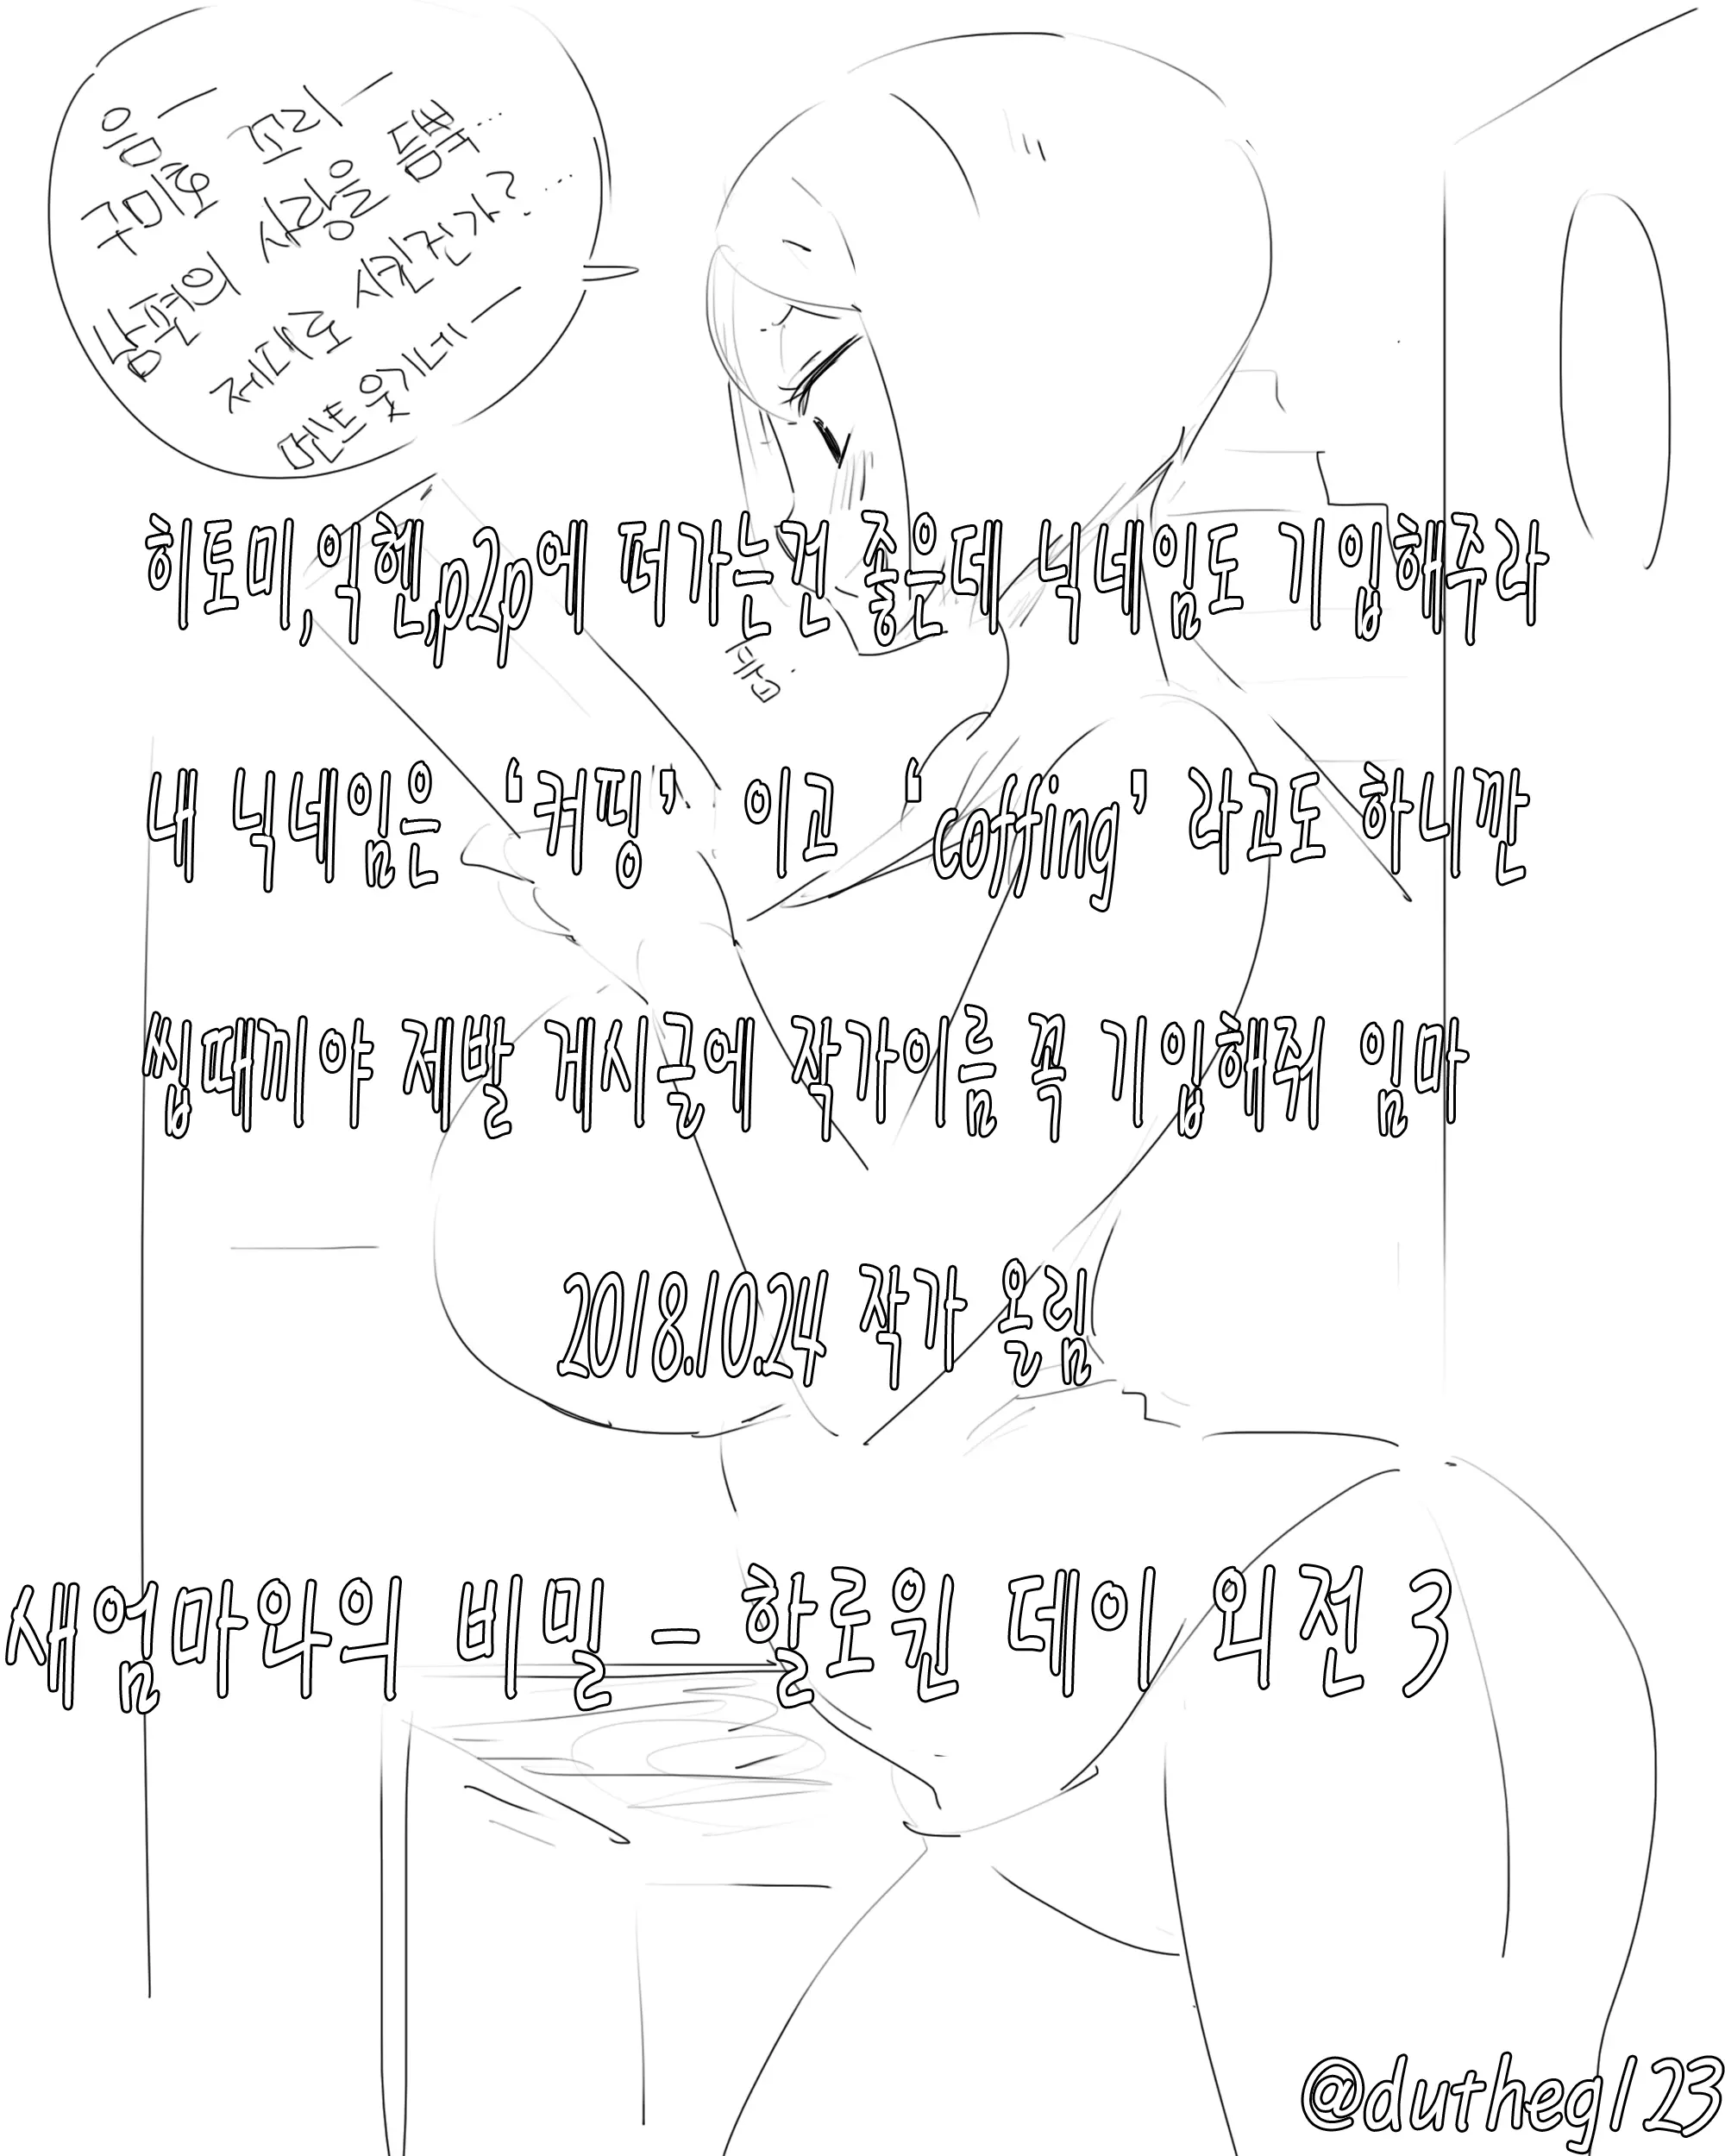 구미호
사랑을
제대로
시킨건가?
히토미,익헨,p2p에 떠가는건 좋은데 닉네임도 기입해주라
내 닉네임은 ‘커핑’ 이고 ‘coffing’ 라고도 하니깐
씹때끼야 제발 게시글에 작가이름 꼭 기입해줘 임마
2018.10.24 작가 올림
새엄마와의 비밀 - 할로윈 데이 외전 3
@dutheg123